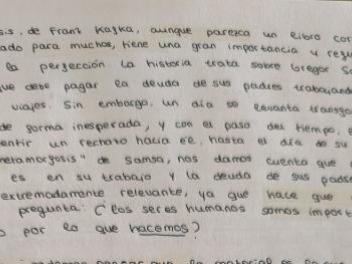 sis. de Franz Kafka, aunque parezca un libro cor
ado para muchos, tiene una gran importancia y
la perfección La historia trata sobre Gregor Sa
que debe pagar la deuda de sus padres trabajand
viajes. Sin embargo, un día se levanta transfo
de forma inesperada, y con el paso del tiempo, e
entir un rechazo hacia él, hasta el día de su
etamorfosis" de Samsa, nos damos cuenta que
es en su trabajo y la deuda de sus padre
extremadamente relevante, ya que hace que
pregunta: ¿los seres humanos somos import
o por lo que hacemos?